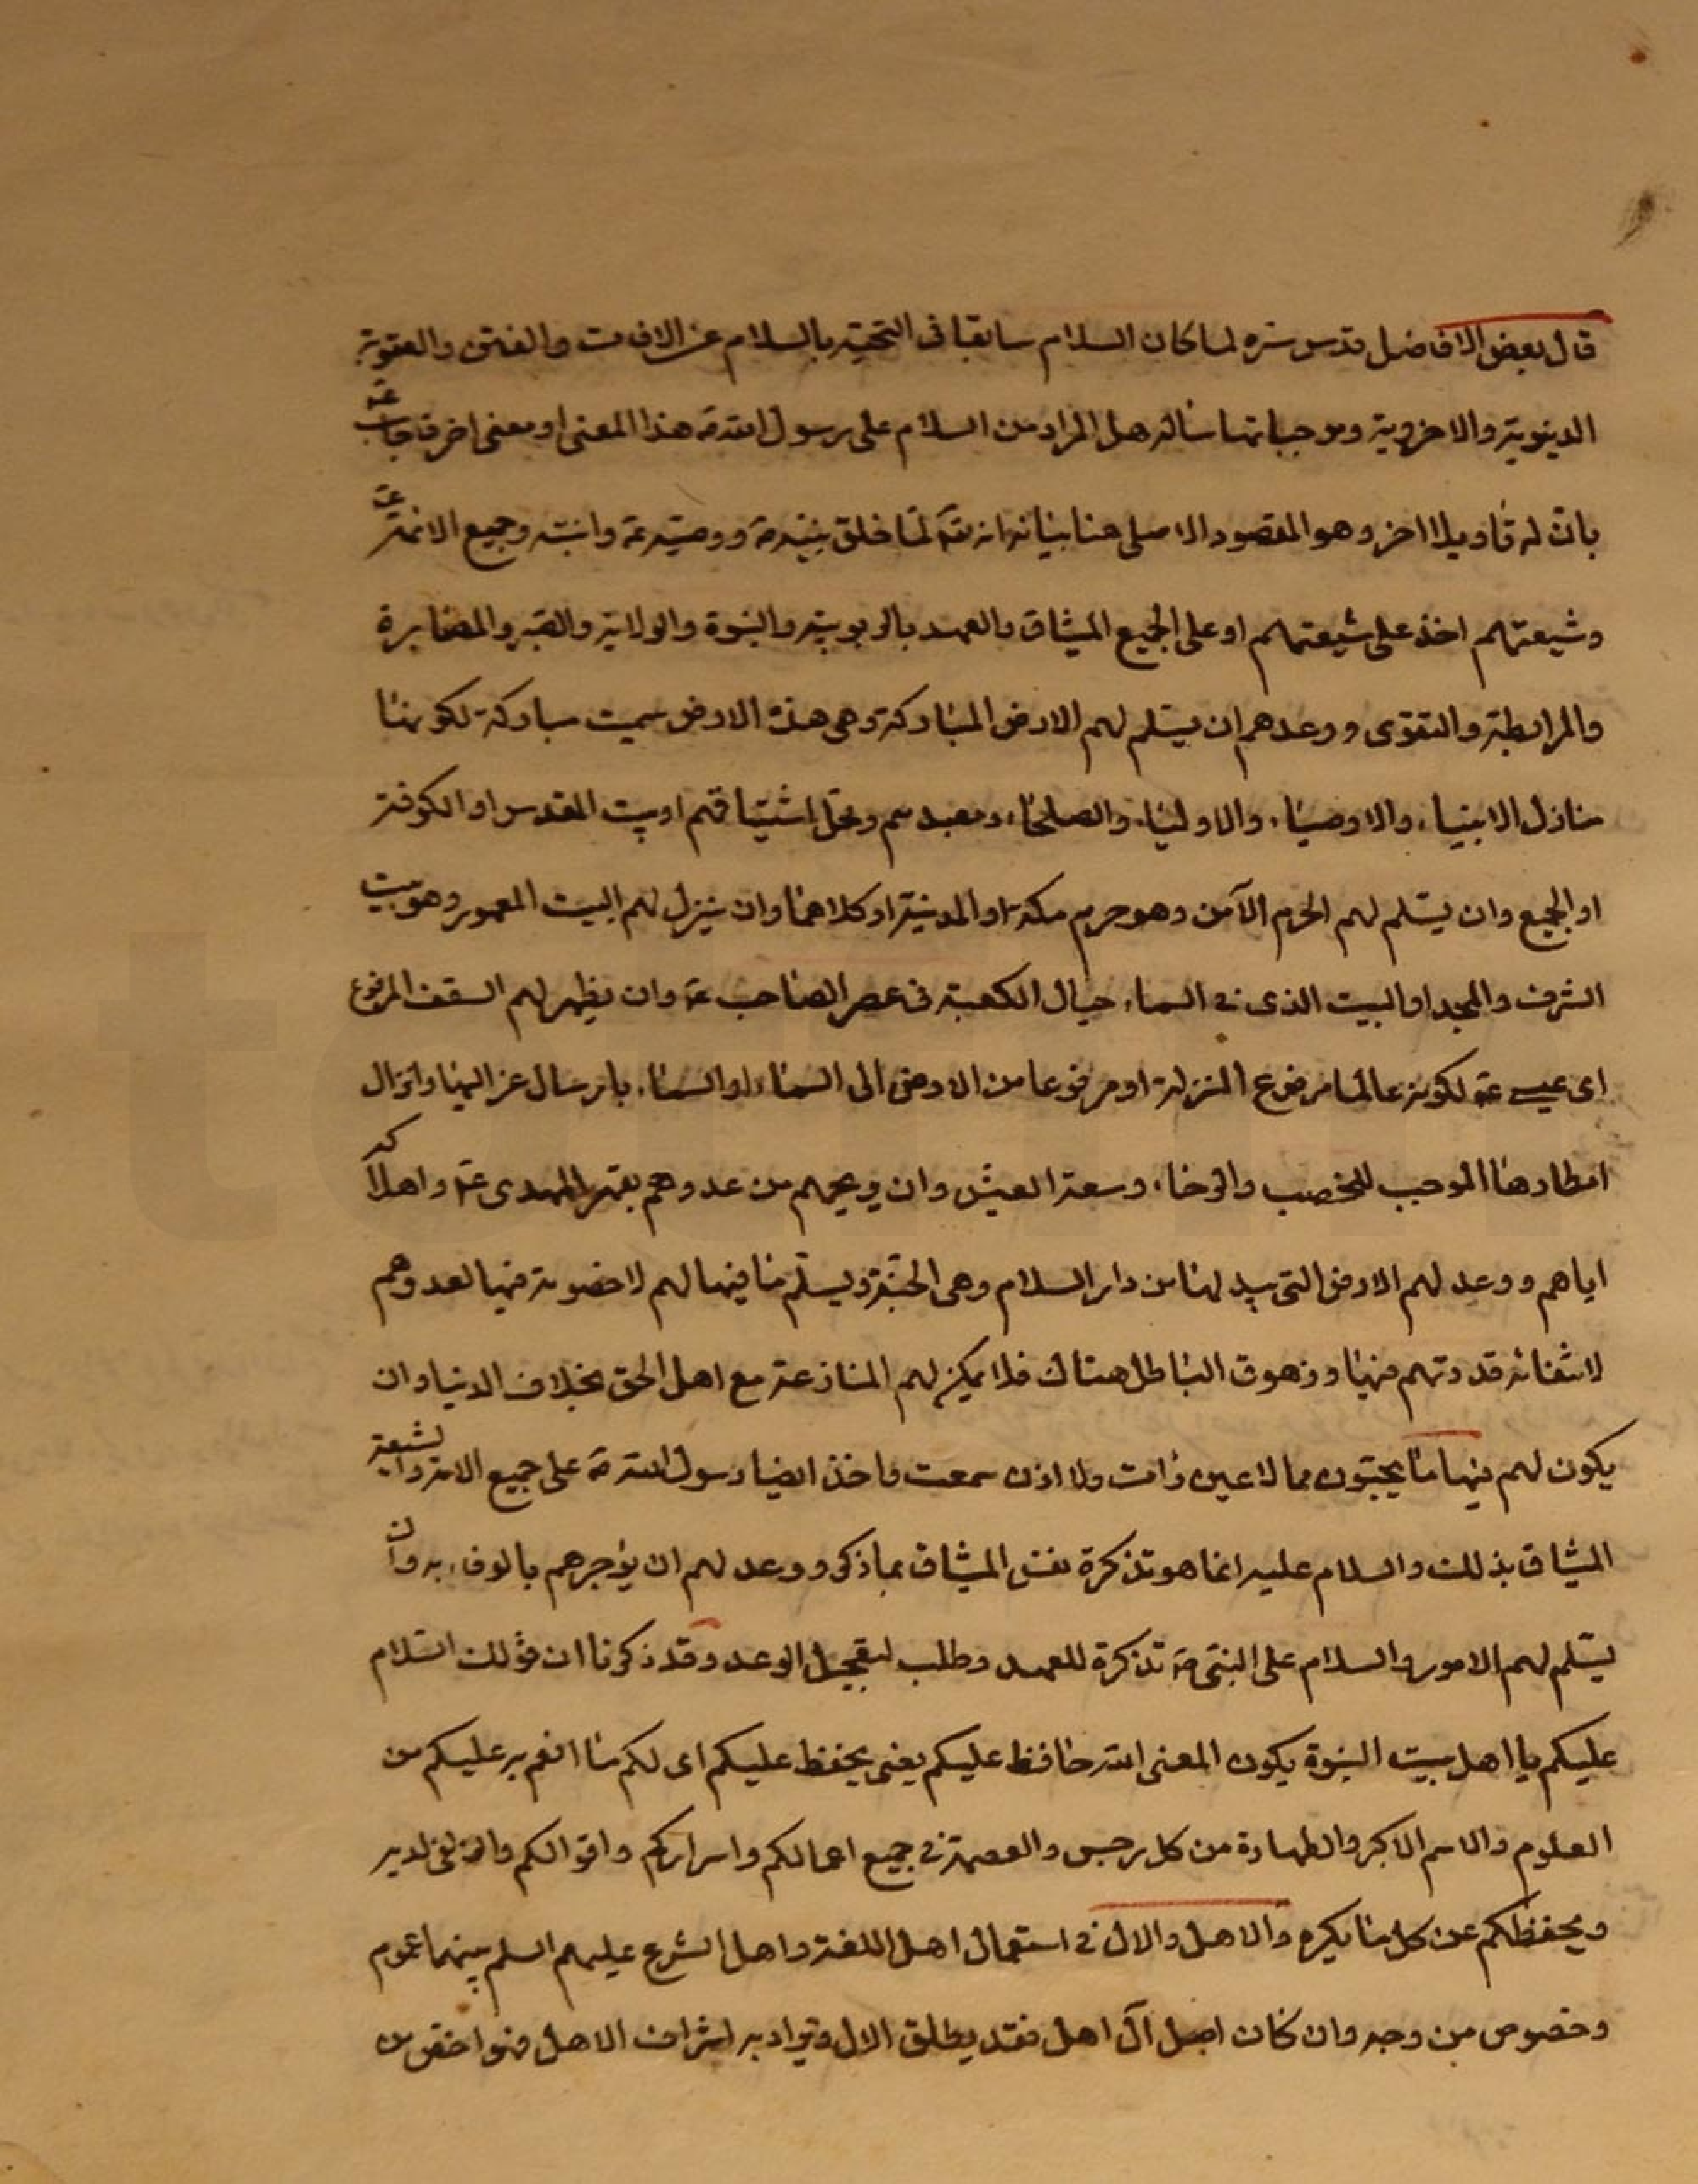 قال بعض الافاضل قدس سره لما كان السلام سابقا فى التحية بالسلام عن الافات والفتن والعقوبة
الدنيوية والاخروية وموجباتها سأله هل المراد من السلام على رسول الله ص هذا المعنى او معنى اخر فاجاب ع
بان له تاويلا اخر وهو المقصود الاصلى هنا بيانه انه تع لما خلق نبيه ص ووصيه ع وابنته وجميع الائمة ع
وشيعتهم اخذ على شيعتهم او على الجميع الميثاق والعهد بالربوبية والنبوة والولاية والصبر والمصابرة
والمرابطة والتقوى ووعدهم ان يسلم لهم الارض المباركة وهى هذه الارض سميت مباركة لكونها
منازل الانبياء والاوصياء والاولياء والصلحاء ومعبدهم ومحل اشتياقهم او بيت المقدس او الكوفة
او الجميع وان يسلم لهم الحرم الآمن وهو حرم مكة او المدينة او كلاهما وان ينزل لهم البيت المعمور وهو بيت
الشرف والمجد او البيت الذى فى السماء حيال الكعبة فى عصر الصاحب ع وان يظهر لهم السقف المرفوع
اى عيسى ع لكونه عالما مرفوع المنزلة او مرفوعا من الارض الى السماء او السماء بارسال عزاليها وانزال
امطارها الموجب للخصب والرخاء وسعة العيش وان يريحهم من عدوهم بقهر المهدى ع واهلاكه
اياهم ووعد لهم الارض التى يبدلها من دار السلام وهى الجنة ويسلم ما فيها لهم لا خصومة فيها لعدوهم
لانتفائه قدرتهم فيها وزهوق الباطل هناك فلا يمكن لهم المنازعة مع اهل الحق بخلاف الدنيا وان
يكون لهم فيها ما يحبون مما لا عين رات ولا اذن سمعت واخذ ايضا رسول الله ص على جميع الامة والشيعة
الميثاق بذلك والسلام عليه انما هو تذكرة نفس الميثاق بما ذكر ووعد لهم ان يؤجرهم بالوفاء به وان
يسلم لهم الامور والسلام على النبى ص تذكرة للعهد وطلب لتعجيل الوعد وقد ذكرنا ان قولك السلام
عليكم يا اهل بيت النبوة يكون المعنى الله حافظ عليكم يعنى يحفظ عليكم اى لكم ما انعم به عليكم من
العلوم والاسم الاكبر والطهارة من كل رجس والعصمة فى جميع اعمالكم واسراركم واقوالكم والزلفى لديه
ويحفظكم عن كل ما يكره والاهل والال فى استعمال اهل اللغة واهل الشرع عليهم السلم بينهما عموم
وخصوص من وجه وان كان اصل آل اهل فقد يطلق الال ويراد به اشراف الاهل فهو اخص من